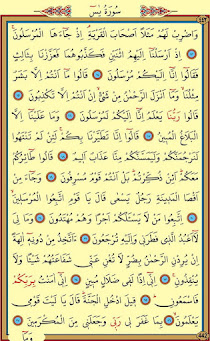 سُورَةُ يٰسٓ
وَاضْرِبْ لَهُمْ مَثَلًا اَصْحَابَ الْقَرْيَةِ اِذْ جَآءَهَا الْمُرْسَلُونَ
اِذْ اَرْسَلْنَآ اِلَيْهِمُ اثْنَيْنِ فَكَذَّبُوهُمَا فَعَزَّزْنَا بِثَالِثٍ
فَقَالُٓوا اِنَّٓا اِلَيْكُمْ مُرْسَلُونَ قَالُوا مَٓا اَنْتُمْ اِلَّا بَشَرٌ
مِثْلُنَا وَمَٓا اَنْزَلَ الرَّحْمٰنُ مِنْ شَيْءٍ اِنْ اَنْتُمْ اِلَّا تَكْذِبُونَ
قَالُوا رَبُّنَا يَعْلَمُ اِنَّٓا اِلَيْكُمْ لَمُرْسَلُونَ وَمَا عَلَيْنَٓا اِلَّا
الْبَلَاغُ الْمُبِينُ قَالُٓوا اِنَّا تَطَيَّرْنَا بِكُمْ لَئِنْ لَمْ تَنْتَهُوا
لَنَرْجُمَنَّكُمْ وَلَيَمَسَّنَّكُمْ مِنَّا عَذَابٌ اَلِيمٌ قَالُوا طَٓائِرُكُمْ
مَعَكُمْ اَئِنْ ذُكِّرْتُمْ بَلْ اَنْتُمْ قَوْمٌ مُسْرِفُونَ وَجَٓاءَ مِنْ
اَقْصَا الْمَدِينَةِ رَجُلٌ يَسْعٰى قَالَ يَا قَوْمِ اتَّبِعُوا الْمُرْسَلِينَ
اِتَّبِعُوا مَنْ لَا يَسْـَٔلُكُمْ اَجْرًا وَهُمْ مُهْتَدُونَ وَمَا لِيَ
لَٓا اَعْبُدُ الَّذِي فَطَرَنِي وَاِلَيْهِ تُرْجَعُونَ ءَاَتَّخِذُ مِنْ دُونِهِٓ اٰلِهَةً
اِنْ يُرِدْنِ الرَّحْمٰنُ بِضُرٍّ لَا تُغْنِ عَنِّي شَفَاعَتُهُمْ شَيْـًٔا وَلَا
يُنْقِذُونِ اِنِّٓي اِذًا لَفِي ضَلَالٍ مُبِينٍ اِنِّٓي اٰمَنْتُ بِرَبِّكُمْ
فَاسْمَعُونِ قِيلَ ادْخُلِ الْجَنَّةَ قَالَ يَا لَيْتَ قَوْمِي
يَعْلَمُونَ بِمَا غَفَرَ لِي رَبِّي وَجَعَلَنِي مِنَ الْمُكْرَمِينَ
وَمَٓا